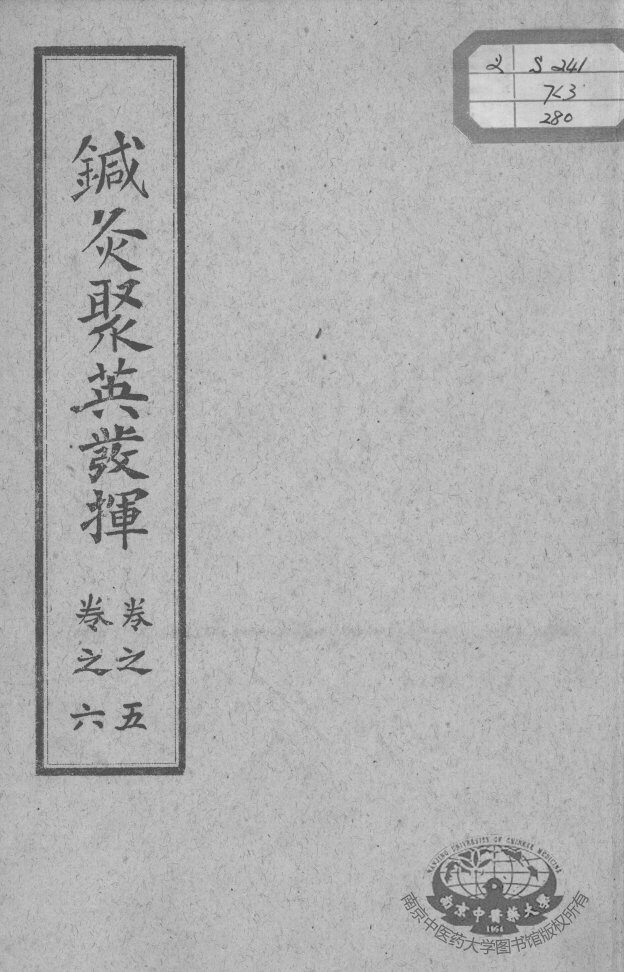 鍼灸聚英發揮
卷之五
卷之六
2 S241
7<3
280
NANJING UNIVERSITY OF CHINESE MEDICINE
南京中醫藥大學
1954
南京中医药大学图书馆版权所有